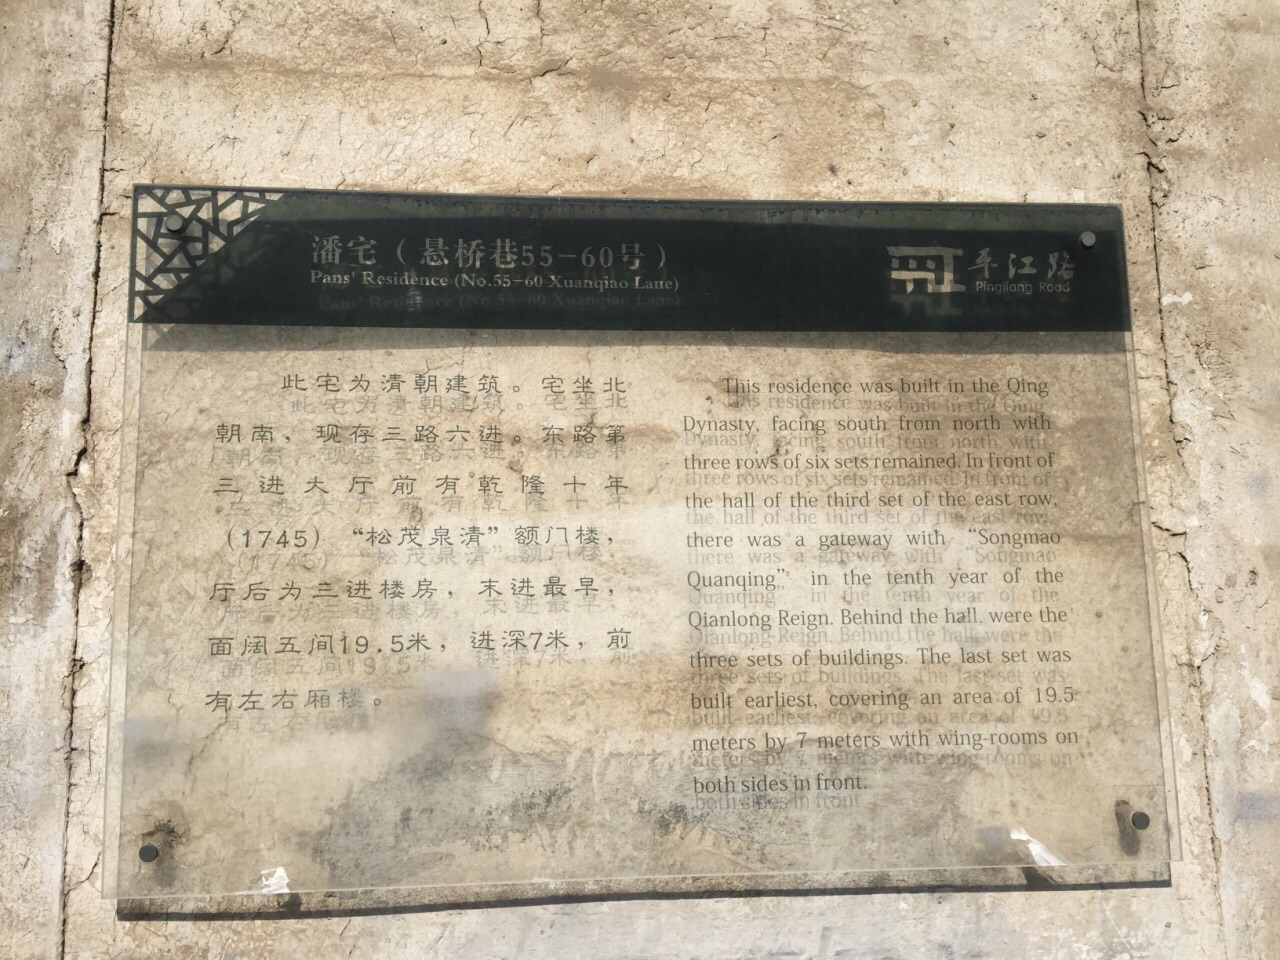 潘宅（悬桥巷55-60号）
Pans' Residence (No.55-60 Xuanqiao Lane)
平江路
Pingjiang Road
此宅为清朝建筑。宅坐北
朝南，现存三路六进。东路第
三进大厅前有乾隆十年
(1745) “松茂泉清”额门楼，
厅后为三进楼房，末进最早，
面阔五间19.5米，进深7米，前
有左右厢楼。
This residence was built in the Qing
Dynasty, facing south from north with
three rows of six sets remained. In front of
the hall of the third set of the east row,
there was a gateway with “Songmao
Quanqing” in the tenth year of the
Qianlong Reign. Behind the hall, were the
three sets of buildings. The last set was
built earliest, covering an area of 19.5
meters by 7 meters with wing-rooms on
both sides in front.